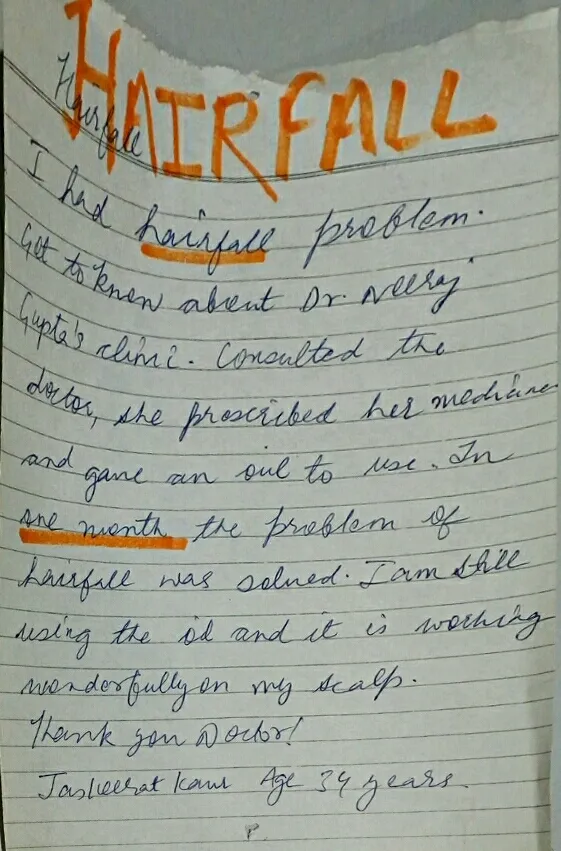 HAIRFALL
Hairfall
I had hairfall problem.
Got to know about Dr. Neeraj
Gupta's clinic. Consulted the
doctor, she proscribed her medicine
and gave an oil to use. In
one month the problem of
hairfall was solved. I am still
using the oil and it is working
wonderfully on my scalp.
Thank you Doctor!
Jaskeerat Kaur Age 34 years.
P.